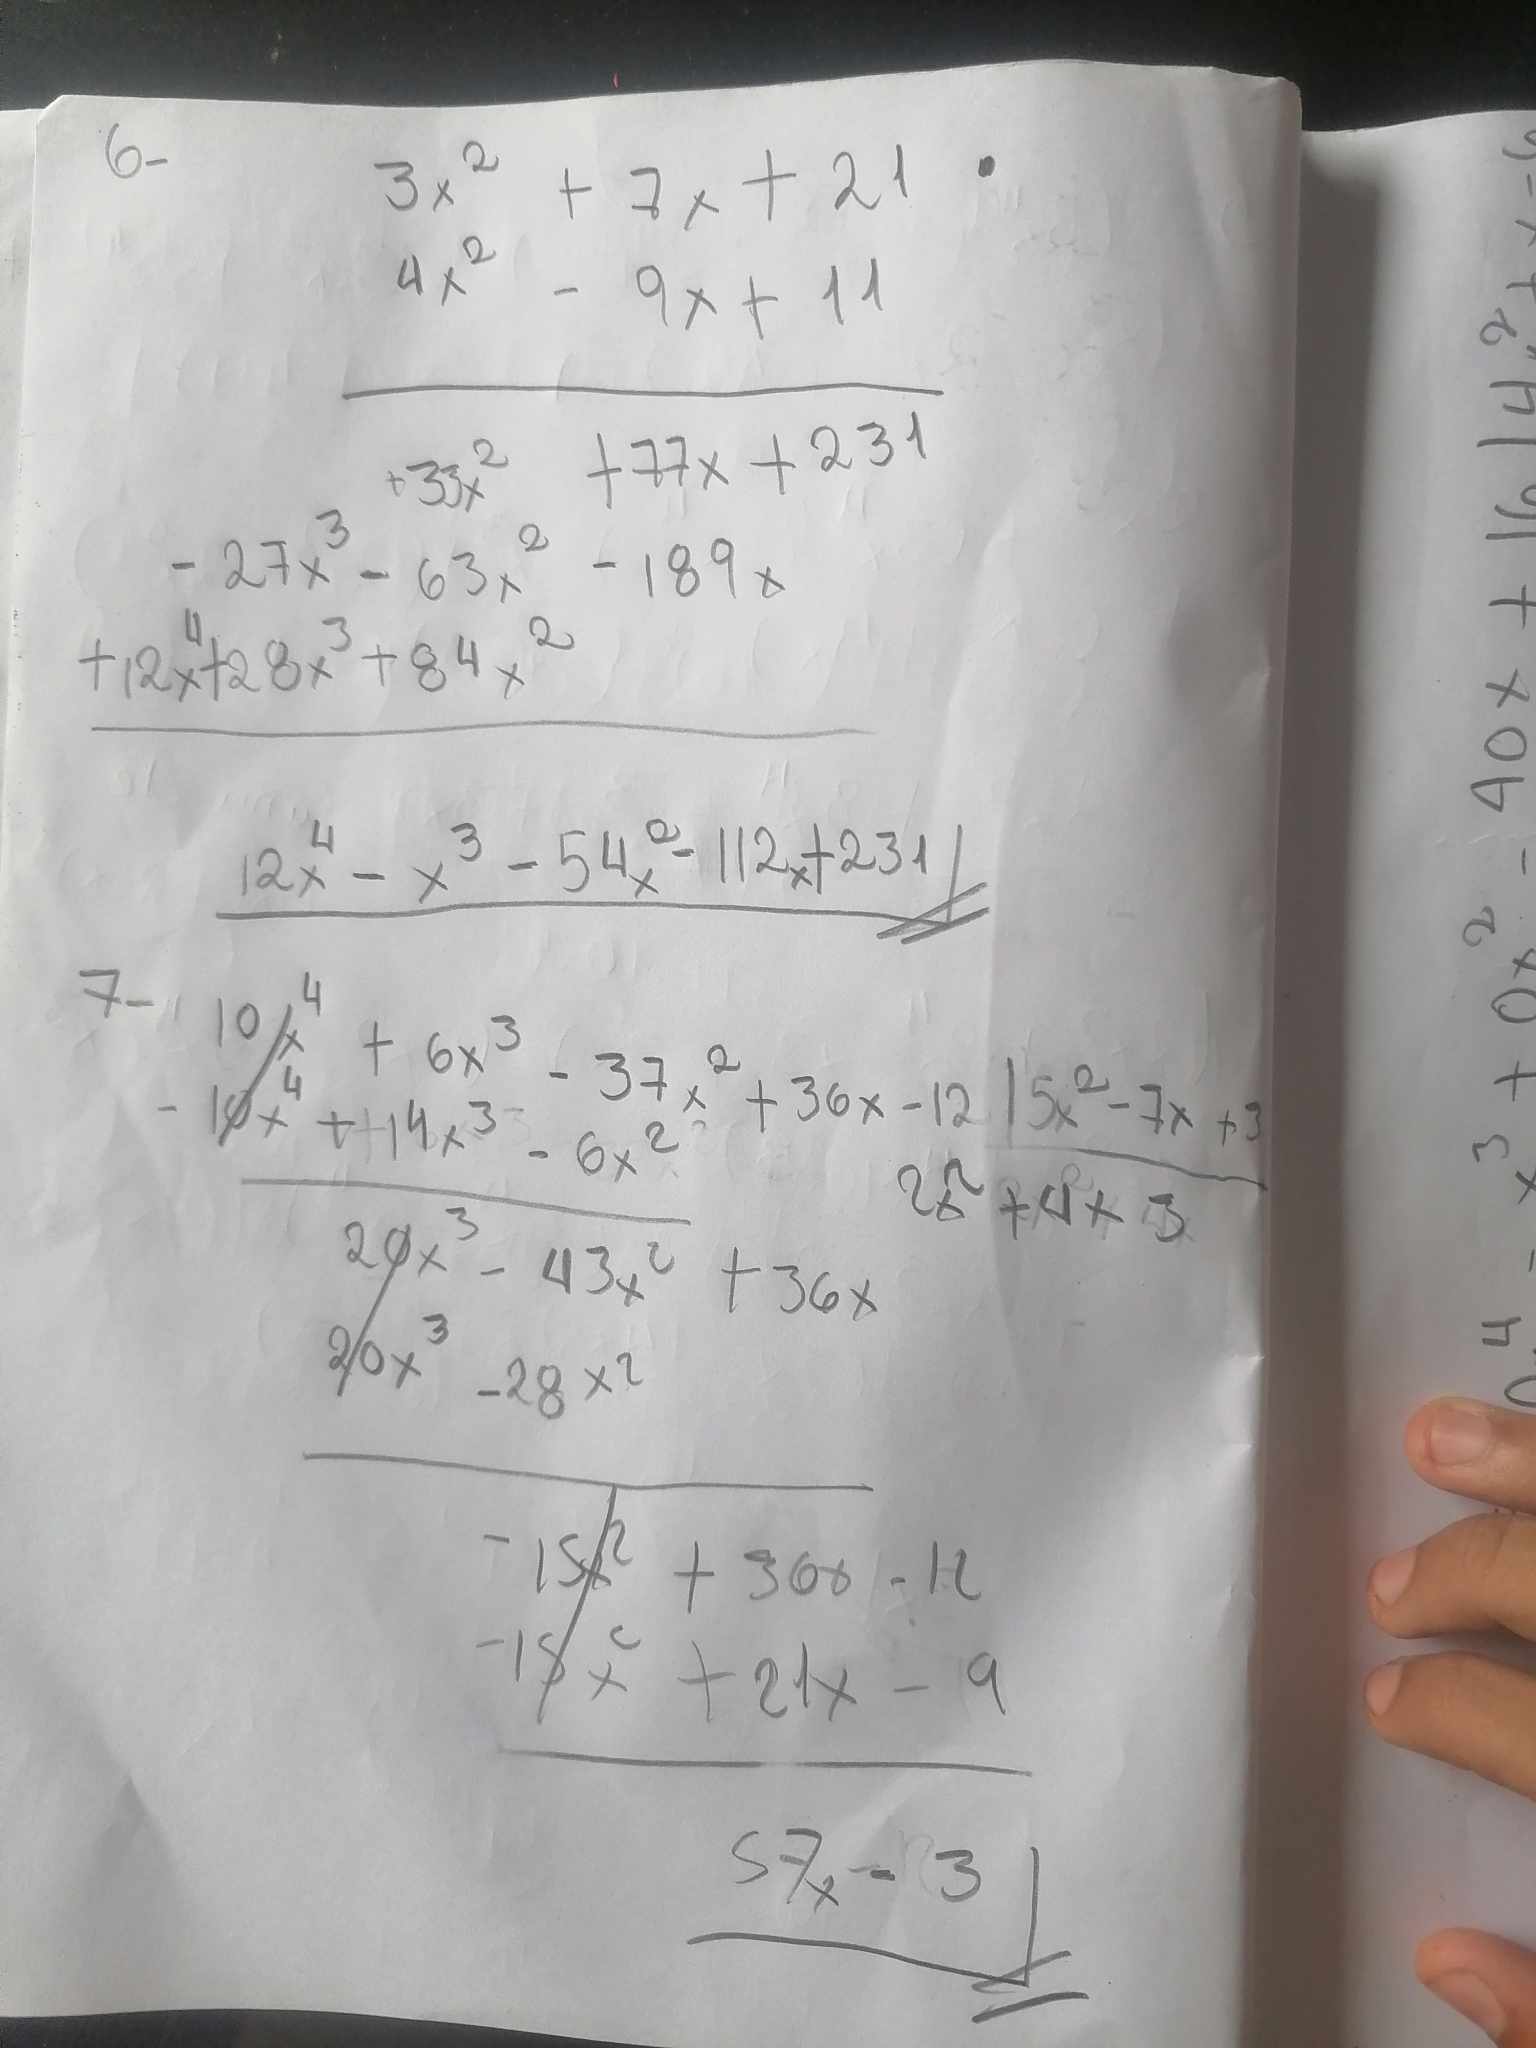 6-
3x² + 7x + 21 •
4x² - 9x + 11
+33x² +77x + 231
- 27x³ - 63x² - 189x
+12x⁴+28x³+84x²
12x⁴ - x³ - 54x² - 112x+231
7- 10x⁴ + 6x³ - 37x² + 36x - 12 | 5x² - 7x + 3
- 10x⁴ + 14x³ - 6x²
2x² + 4x 3
20x³ - 43x² + 36x
20x³ - 28x²
-15x² + 36x - 12
-15x² + 21x - 9
57x - 3
- x³ + 0x² - 40x + 16 | 4x² + x -